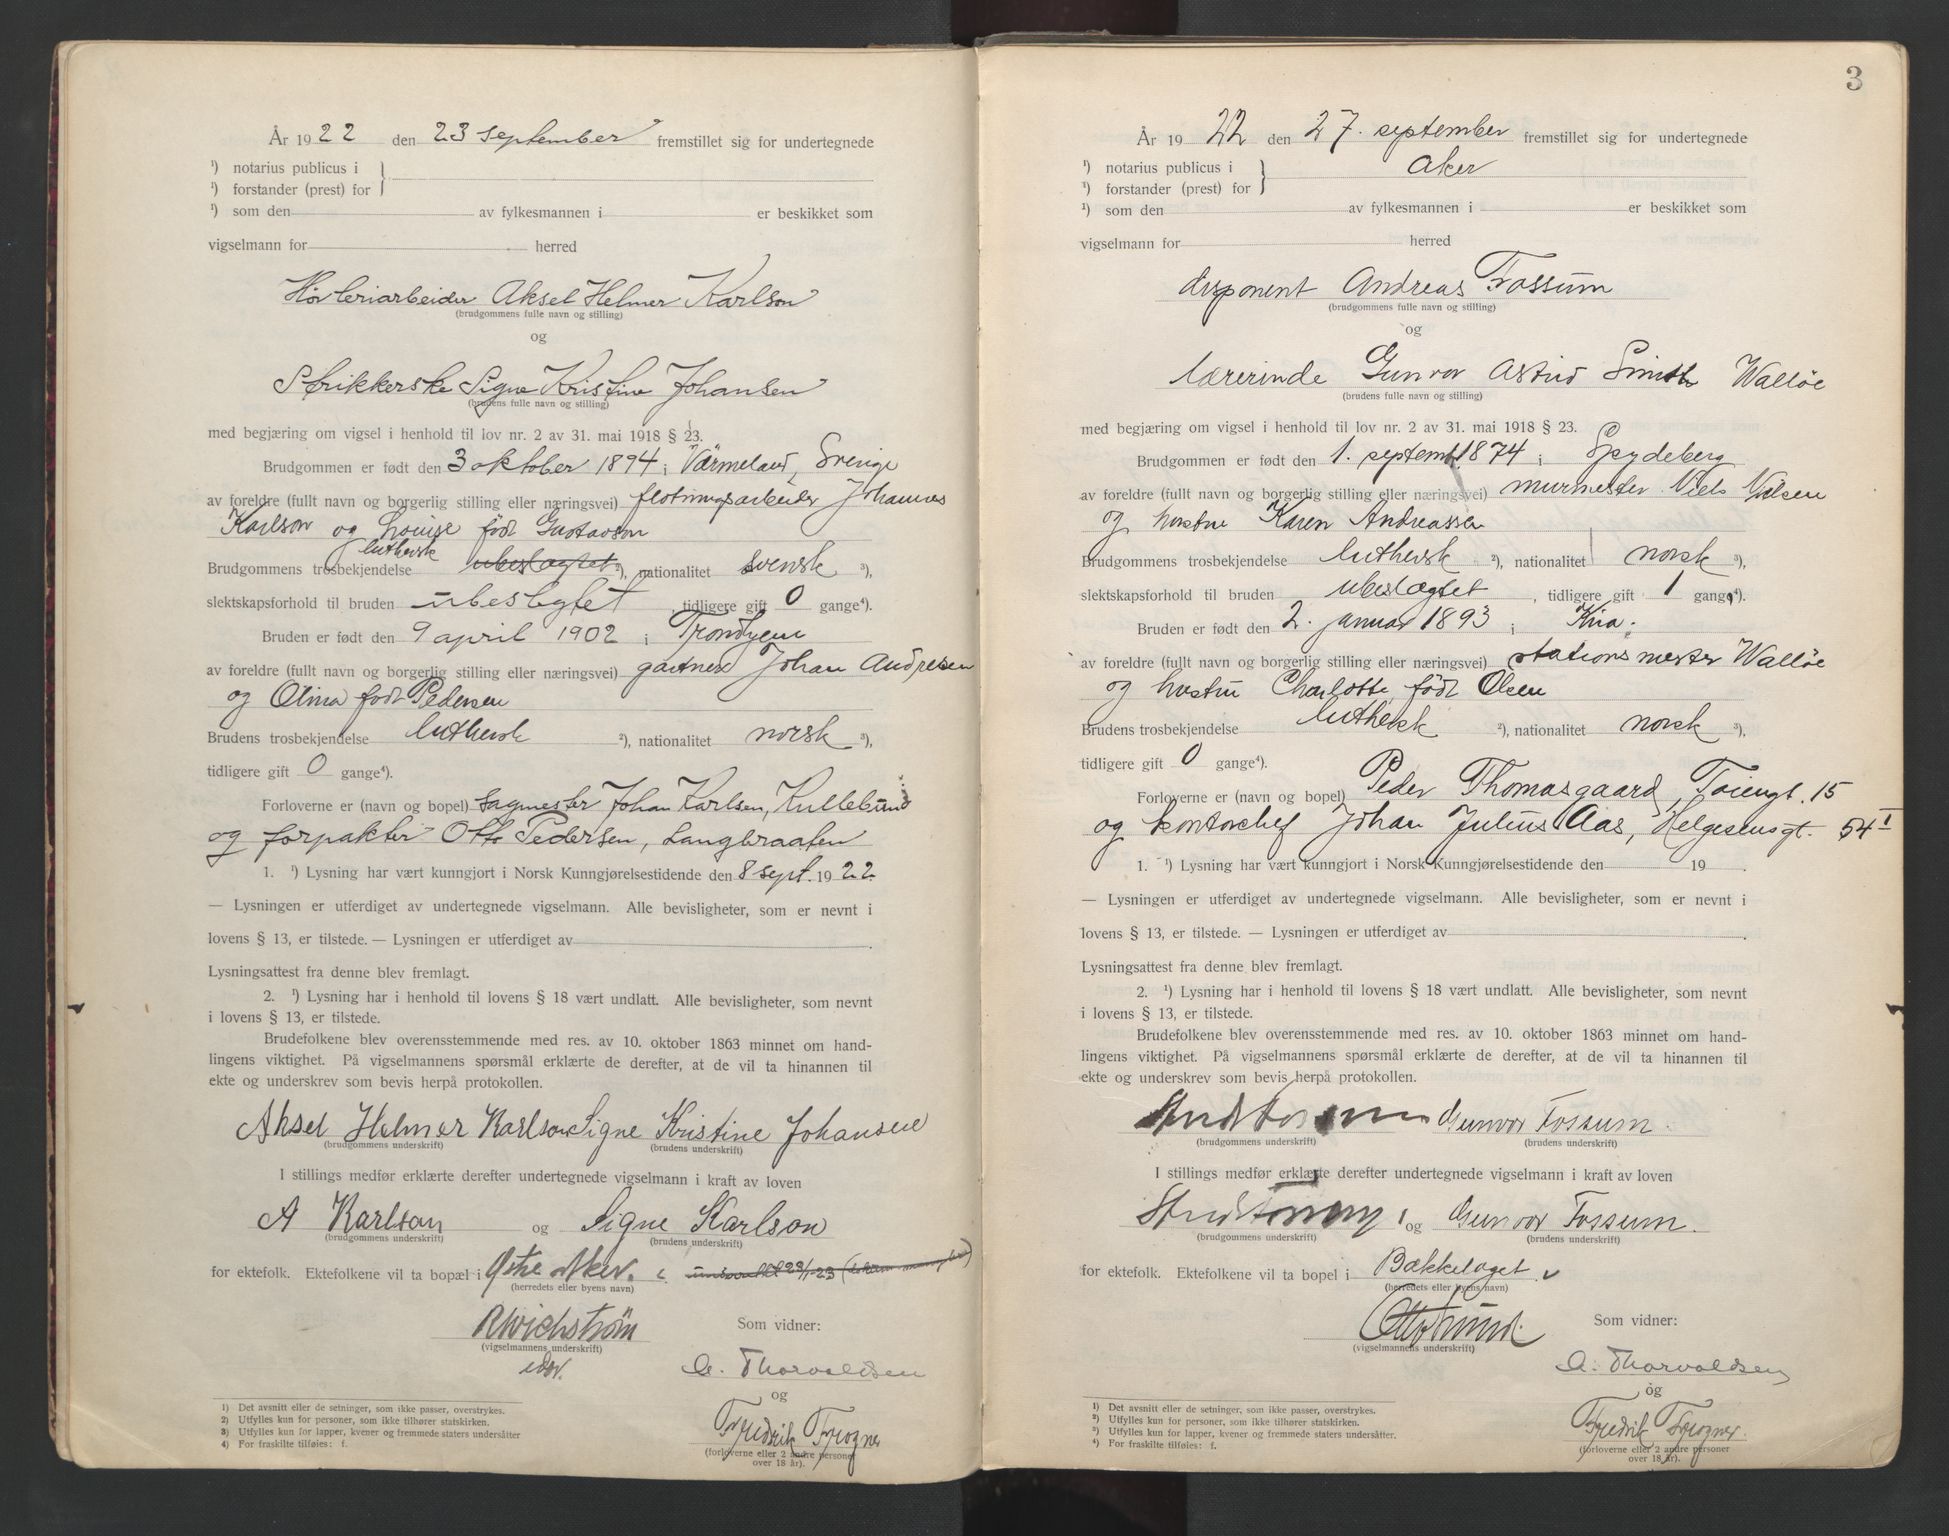 År 1922 den 23 september fremstillet sig for undertegnede
¹) notarius publicus i
¹) forstander (prest) for
¹) som den av fylkesmannen i er beskikket som
vigselmann for herred
Høvleriarbeider Aksel Helmer Karlson
(brudgommens fulle navn og stilling)
og
Strikkerske Signe Kristine Johansen
(brudens fulle navn og stilling)
med begjæring om vigsel i henhold til lov nr. 2 av 31. mai 1918 § 23.
Brudgommen er født den 3 oktober 1894 i Värmeland, Sverige
av foreldre (fullt navn og borgerlig stilling eller næringsvei) fløtningsarbeider Johannes
Karlson og Louise født Gustavson
luthersk
Brudgommens trosbekjendelse ubeslægtet ²), nationalitet svensk ³),
slektskapsforhold til bruden ubeslegtet, tidligere gift 0 gange⁴).
Bruden er født den 9 april 1902 i Trondhjem
av foreldre (fullt navn og borgerlig stilling eller næringsvei) gartner Johan Andresen
og Olina født Pedersen
Brudens trosbekjendelse luthersk ²), nationalitet norsk ³),
tidligere gift 0 gange⁴).
Forloverne er (navn og bopel) sagmester Johan Karlsen, Kullebund
og forpakter Otto Pedersen, Langbraaten
1. ¹) Lysning har vært kunngjort i Norsk Kunngjørelsestidende den 8 sept. 1922.
— Lysningen er utferdiget av undertegnede vigselmann. Alle bevisligheter, som er nevnt i
lovens § 13, er tilstede. — Lysningen er utferdiget av
Lysningsattest fra denne blev fremlagt.
2. ¹) Lysning har i henhold til lovens § 18 vært undlatt. Alle bevisligheter, som nevnt
i lovens § 13, er tilstede.
Brudefolkene blev overensstemmende med res. av 10. oktober 1863 minnet om hand-
lingens viktighet. På vigselmannens spørsmål erklærte de derefter, at de vil ta hinannen til
ekte og underskrev som bevis herpå protokollen.
Aksel Helmer Karlson Signe Kristine Johansen
(brudgommens underskrift) (brudens underskrift)
I stillings medfør erklærte derefter undertegnede vigselmann i kraft av loven
A Karlson og Signe Karlson
(brudgommens underskrift) (brudens underskrift)
for ektefolk. Ektefolkene vil ta bopæl i Østre Aker.
(herredets eller byens navn)
Som vidner:
(vigselmannens underskrift)
Thorvaldsen
og
Fredrik Frogner
(forloverne eller 2 andre personer
over 18 år).
1) Det avsnitt eller de setninger, som ikke passer, overstrykes.
2) Utfylles kun for personer, som ikke tilhører statskirken.
3) Utfylles kun for lapper, kvener og fremmede staters undersåtter
4) For fraskilte tilføies: f.
3
År 1922 den 27. september fremstillet sig for undertegnede
¹) notarius publicus i Aker
¹) forstander (prest) for
¹) som den av fylkesmannen i er beskikket som
vigselmann for herred
disponent Andreas Fossum
(brudgommens fulle navn og stilling)
og
lærerinde Gunvor Astrid Smith Walløe
(brudens fulle navn og stilling)
med begjæring om vigsel i henhold til lov nr. 2 av 31. mai 1918 § 23.
Brudgommen er født den 1. septemb. 1874 i Spydeberg
av foreldre (fullt navn og borgerlig stilling eller næringsvei) murmester Niels Nilsen
og hustru Karen Andreassen
Brudgommens trosbekjendelse luthersk ²), nationalitet norsk ³),
slektskapsforhold til bruden ubeslægtet, tidligere gift 1 gange⁴).
Bruden er født den 2. januar 1893 i Kria.
av foreldre (fullt navn og borgerlig stilling eller næringsvei) stationsmester Walløe
og hustru Charlotte født Olsen
Brudens trosbekjendelse luthersk ²), nationalitet norsk ³),
tidligere gift 0 gange⁴).
Forloverne er (navn og bopel) Peder Thomasgaard, Tøiengt. 15
og kontorchef Johan Julius Aas, Helgesensgt. 54 I
1. ¹) Lysning har vært kunngjort i Norsk Kunngjørelsestidende den 19 .
— Lysningen er utferdiget av undertegnede vigselmann. Alle bevisligheter, som er nevnt i
lovens § 13, er tilstede. — Lysningen er utferdiget av
Lysningsattest fra denne blev fremlagt.
2. ¹) Lysning har i henhold til lovens § 18 vært undlatt. Alle bevisligheter, som nevnt
i lovens § 13, er tilstede.
Brudefolkene blev overensstemmende med res. av 10. oktober 1863 minnet om hand-
lingens viktighet. På vigselmannens spørsmål erklærte de derefter, at de vil ta hinannen til
ekte og underskrev som bevis herpå protokollen.
Gunvor Fossum.
(brudgommens underskrift) (brudens underskrift)
I stillings medfør erklærte derefter undertegnede vigselmann i kraft av loven
og Gunvor Fossum.
(brudgommens underskrift) (brudens underskrift)
for ektefolk. Ektefolkene vil ta bopel i Bækkelaget
(herredets eller byens navn)
Som vidner:
(vigselmannens underskrift)
Thorvaldsen
og
Fredrik Frogner.
(forloverne eller 2 andre personer
over 18 år).
¹) Det avsnitt eller de setninger, som ikke passer, overstrykes.
²) Utfylles kun for personer, som ikke tilhører statskirken.
³) Utfylles kun for lapper, kvener og fremmede staters undersåtter.
⁴) For fraskilte tilføies: f.